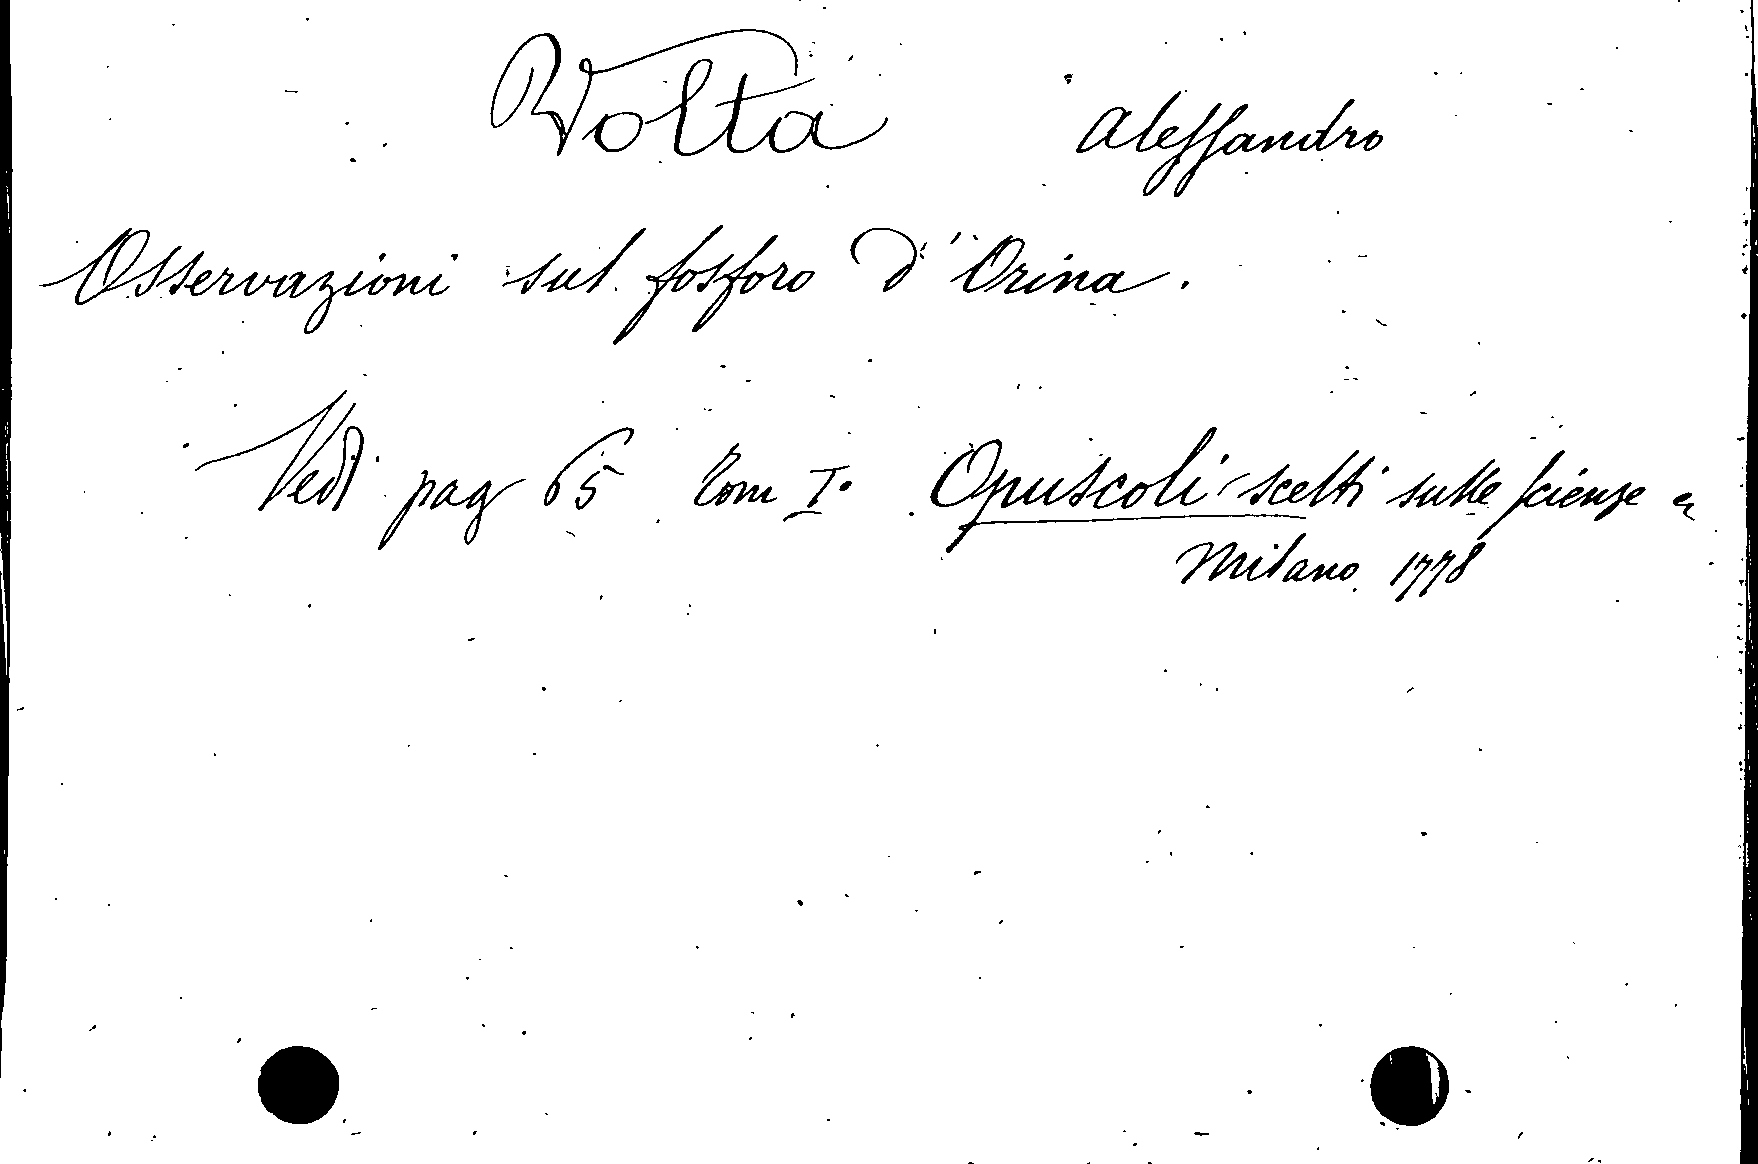 Volta Alessandro
Osservazioni sul fosforo d'Orina.
Vedi pag 65 Tom I.º Opuscoli scelti sulle scienze e
Milano 1778